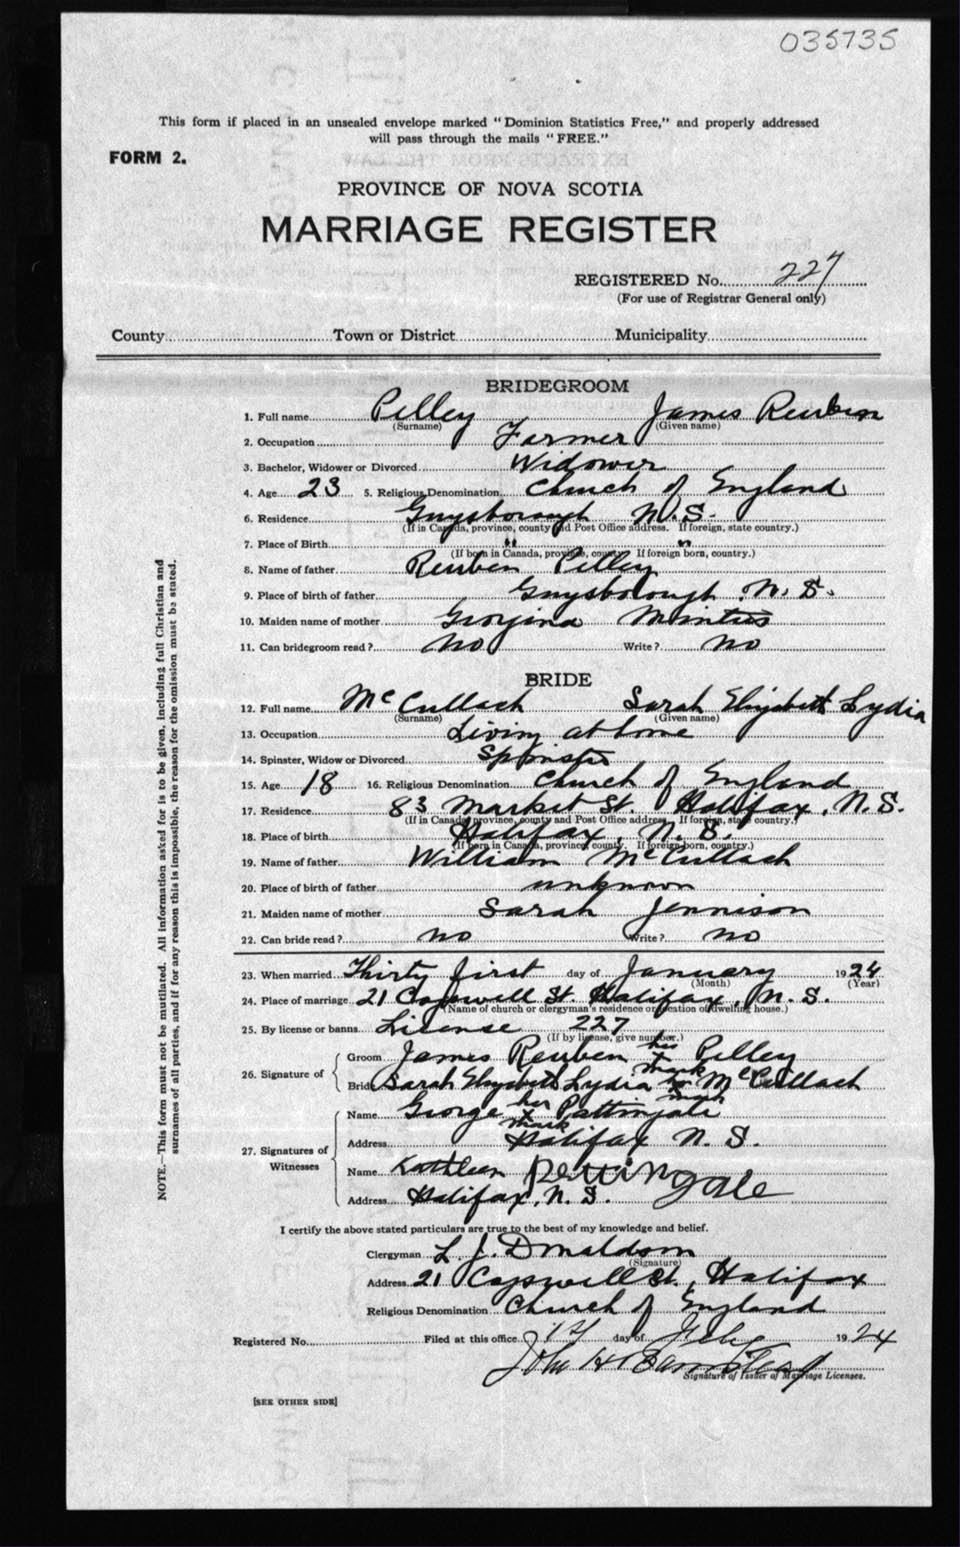 035735
This form if placed in an unsealed envelope marked "Dominion Statistics Free," and properly addressed
will pass through the mails "FREE."
FORM 2.
PROVINCE OF NOVA SCOTIA
MARRIAGE REGISTER
REGISTERED No. 227
(For use of Registrar General only)
County Town or District Municipality
BRIDEGROOM
1. Full name Pelley James Reuben
(Surname) (Given name)
2. Occupation Farmer
3. Bachelor, Widower or Divorced Widower
4. Age 23 5. Religious Denomination Church of England
6. Residence Guysborough N.S.
(If in Canada, province, county and Post Office address. If foreign, state country.)
7. Place of Birth " "
(If born in Canada, province, county. If foreign born, country.)
8. Name of father Reuben Pelley
9. Place of birth of father Guysborough N.S.
10. Maiden name of mother Georgina
11. Can bridegroom read? No Write? No
BRIDE
12. Full name McCullach Sarah Elizabeth Lydia
(Surname) (Given name)
13. Occupation Living at home
14. Spinster, Widow or Divorced Spinster
15. Age 18 16. Religious Denomination Church of England
17. Residence 83 Market St. Halifax, N.S.
(If in Canada, province, county and Post Office address. If foreign, state country.)
18. Place of birth Halifax, N.S.
(If born in Canada, province, county. If foreign born, country.)
19. Name of father William McCullach
20. Place of birth of father unknown
21. Maiden name of mother Sarah Jennison
22. Can bride read? No Write? No
23. When married Thirty first day of January 1924
(Month) (Year)
24. Place of marriage 21 Cogswell St. Halifax, N.S.
(Name of church or clergyman's residence or location of dwelling house.)
25. By license or banns License 227
(If by license, give number.)
26. Signature of
Groom James Reuben his x mark Pelley
Bride Sarah Elizabeth Lydia her x mark McCullach
27. Signatures of Witnesses
Name George her x mark Pattingale
Address Halifax N.S.
Name Kathleen Pettingale
Address Halifax, N.S.
I certify the above stated particulars are true to the best of my knowledge and belief.
Clergyman L. J. Donaldson
(Signature)
Address 21 Cogswell St., Halifax
Religious Denomination Church of England
Registered No. Filed at this office day of Feby 1924
John H Barnstead
Signature of Issuer of Marriage Licenses.
[SEE OTHER SIDE]
NOTE.—This form must not be mutilated. All information asked for is to be given, including full Christian and
surnames of all parties, and if for any reason this is impossible, the reason for the omission must be stated.